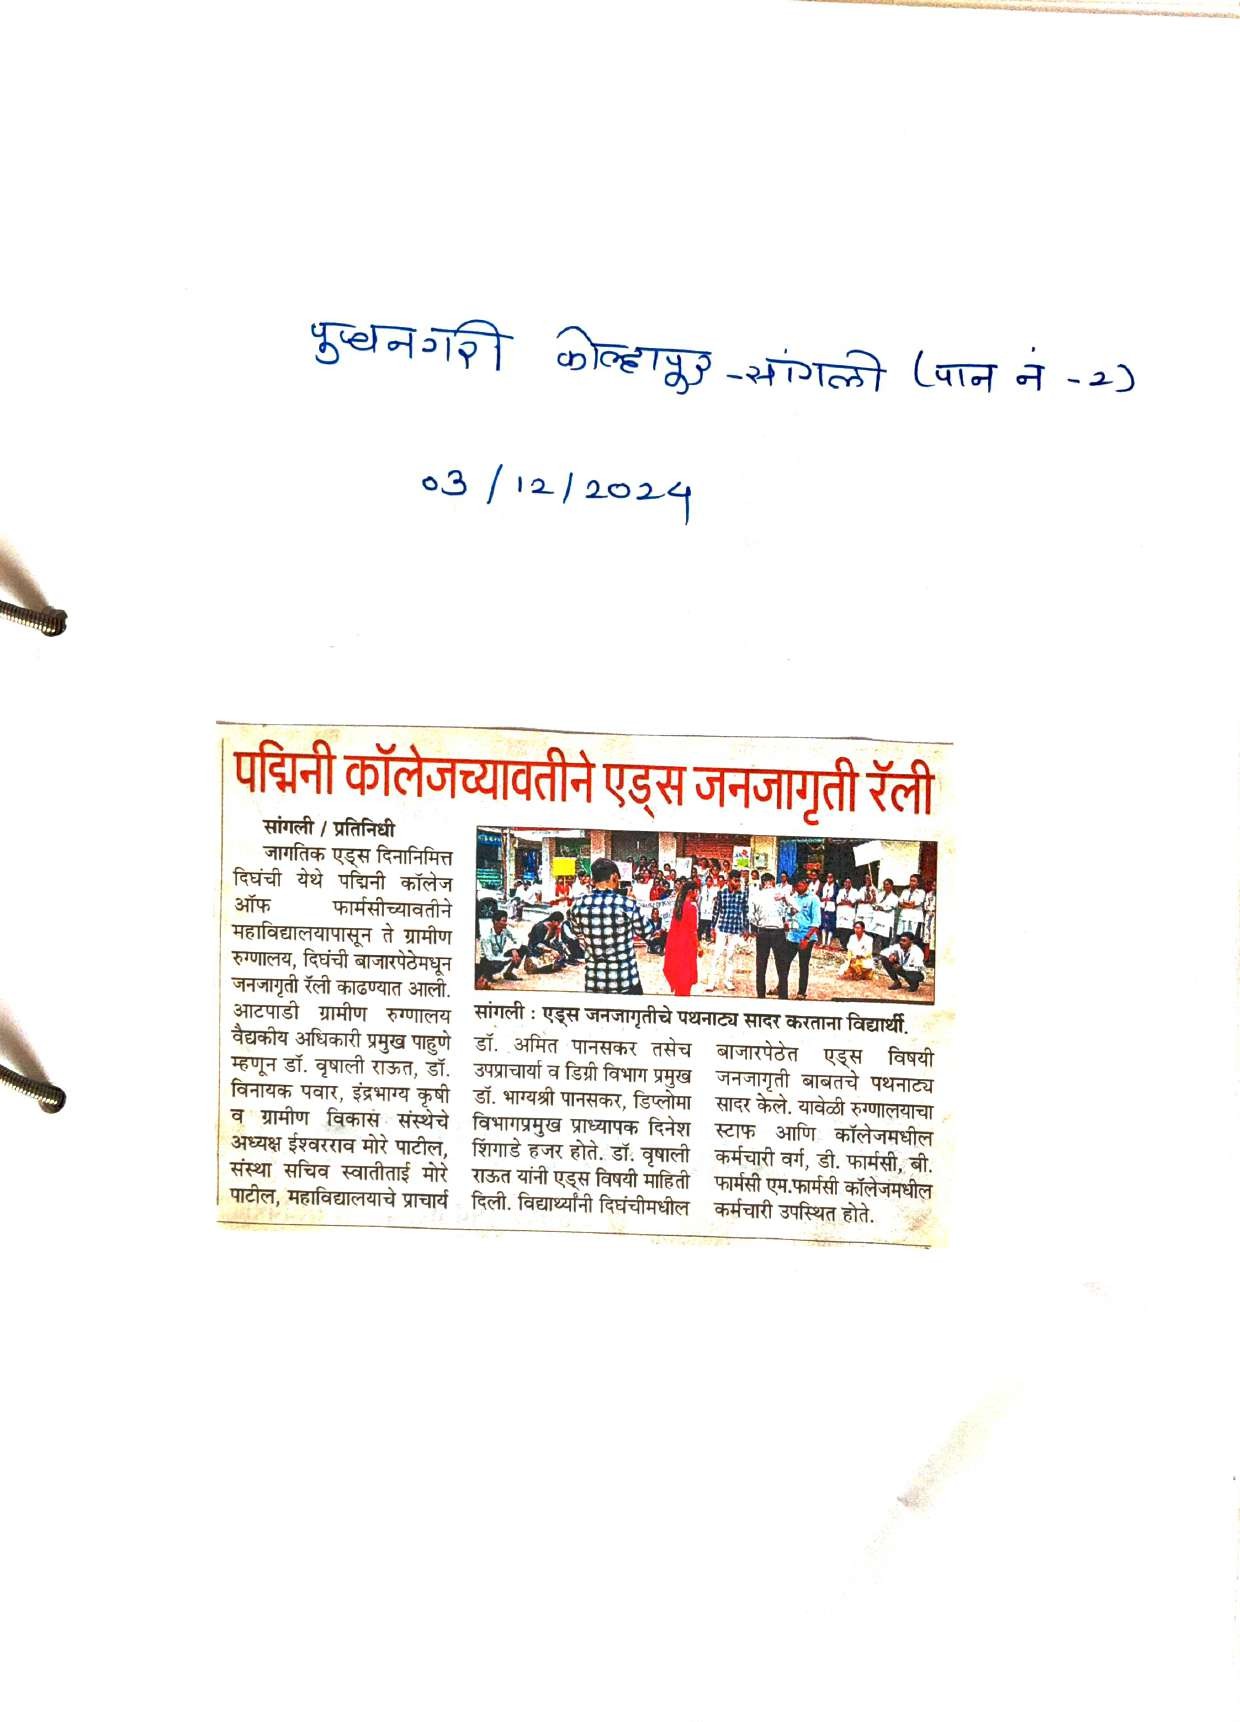 पुण्यनगरी कोल्हापूर - सांगली (पान नं - 2)
03/12/2024
पद्मिनी कॉलेजच्यावतीने एड्स जनजागृती रॅली
सांगली / प्रतिनिधी
जागतिक एड्स दिनानिमित्त
दिघंची येथे पद्मिनी कॉलेज
ऑफ फार्मसीच्यावतीने
महाविद्यालयापासून ते ग्रामीण
रुग्णालय, दिघंची बाजारपेठेमधून
जनजागृती रॅली काढण्यात आली.
आटपाडी ग्रामीण रुग्णालय
वैद्यकीय अधिकारी प्रमुख पाहुणे
म्हणून डॉ. वृषाली राऊत, डॉ.
विनायक पवार, इंद्रभाग्य कृषी
व ग्रामीण विकास संस्थेचे
अध्यक्ष ईश्वरराव मोरे पाटील,
संस्था सचिव स्वातीताई मोरे
पाटील, महाविद्यालयाचे प्राचार्य
सांगली : एड्स जनजागृतीचे पथनाट्य सादर करताना विद्यार्थी.
डॉ. अमित पानसकर तसेच
उपप्राचार्या व डिग्री विभाग प्रमुख
डॉ. भाग्यश्री पानसकर, डिप्लोमा
विभागप्रमुख प्राध्यापक दिनेश
शिंगाडे हजर होते. डॉ. वृषाली
राऊत यांनी एड्स विषयी माहिती
दिली. विद्यार्थ्यांनी दिघंचीमधील
बाजारपेठेत एड्स विषयी
जनजागृती बाबतचे पथनाट्य
सादर केले. यावेळी रुग्णालयाचा
स्टाफ आणि कॉलेजमधील
कर्मचारी वर्ग, डी. फार्मसी, बी.
फार्मसी एम.फार्मसी कॉलेजमधील
कर्मचारी उपस्थित होते.